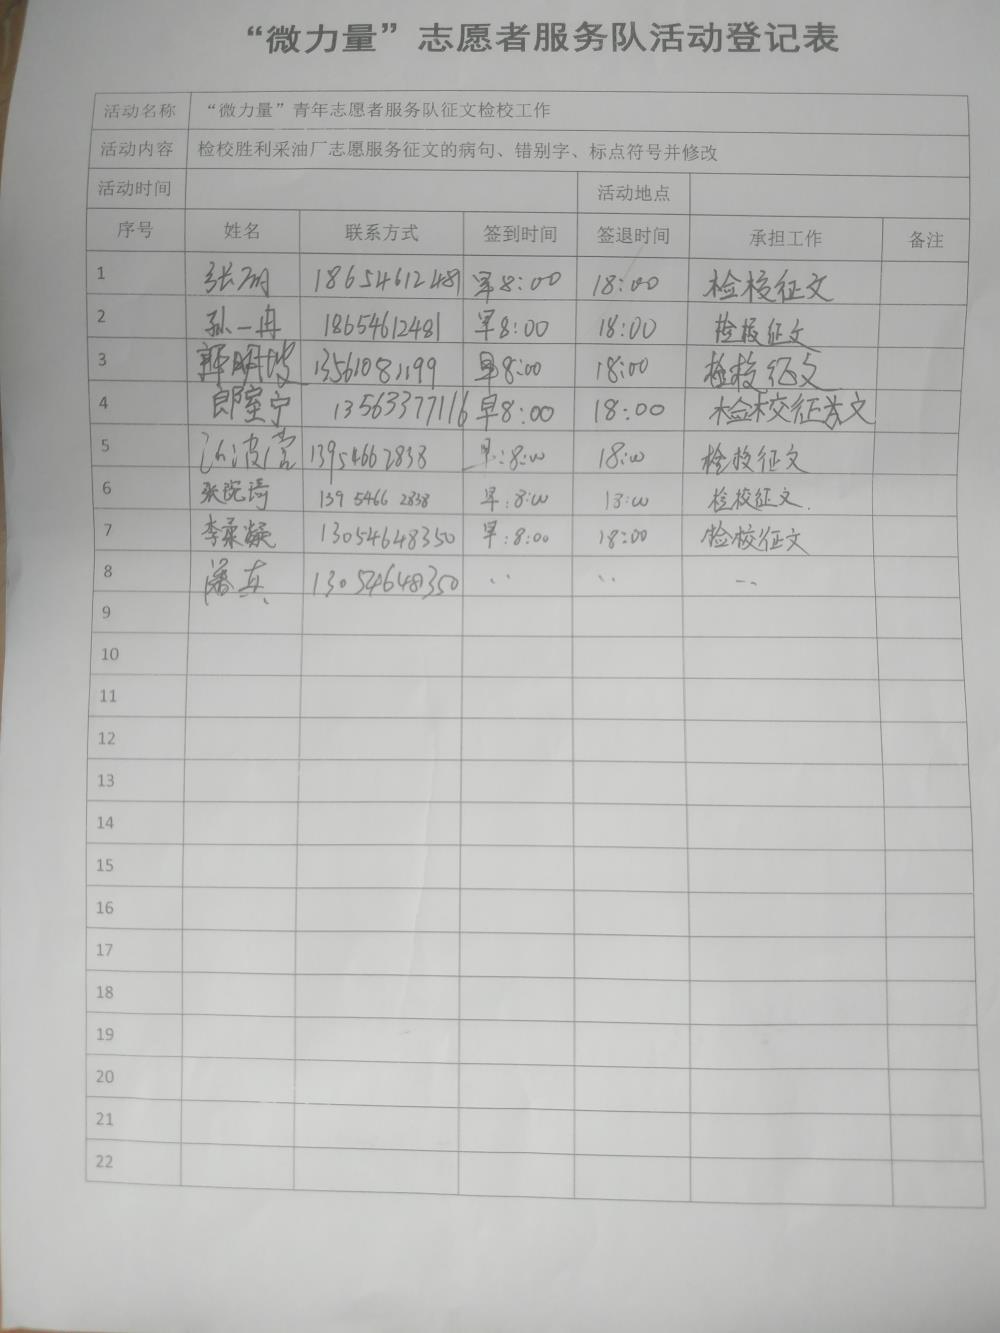 “微力量”志愿者服务队活动登记表
活动名称 “微力量”青年志愿者服务队征文检校工作
活动内容 检校胜利采油厂志愿服务征文的病句、错别字、标点符号并修改
活动时间 活动地点
序号 姓名 联系方式 签到时间 签退时间 承担工作 备注
1 张丽 18654612481 早8:00 18:00 检校征文
2 孙一冉 18654612481 早8:00 18:00 检校征文
3 13561081199 早8:00 18:00 检校征文
4 郎室宁 13563377116 早8:00 18:00 检校征文
5 13954662838 早:8:00 18:00 检校征文
6 张院琦 139 5466 2838 早:8:00 18:00 检校征文.
7 李柔凝 13054648350 早:8:00 18:00 检校征文
8 潘真 13054648350 ·· ·· ··
9
10
11
12
13
14
15
16
17
18
19
20
21
22